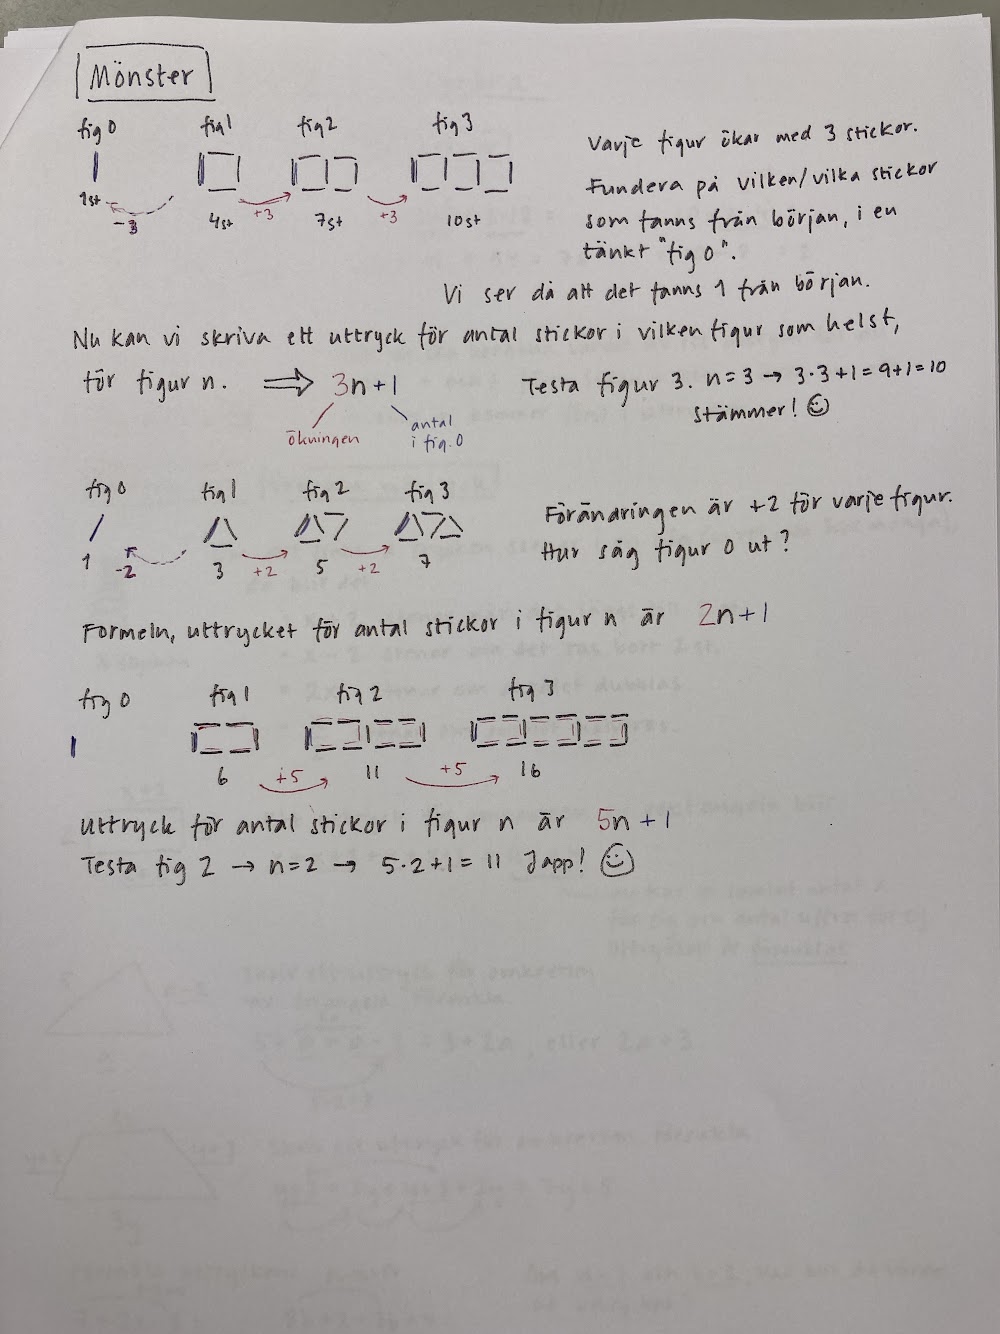 Mönster
fig 0 fig 1 fig 2 fig 3
1st 4st 7st 10st
-3 +3 +3
Varje figur ökar med 3 stickor.
Fundera på vilken/vilka stickor
som fanns från början, i en
tänkt "fig 0".
Vi ser då att det fanns 1 från början.
Nu kan vi skriva ett uttryck för antal stickor i vilken figur som helst,
för figur n. ⇒ 3n+1
ökningen
antal
i fig. 0
Testa figur 3. n=3 → 3·3+1=9+1=10
stämmer! ☺
fig 0 fig 1 fig 2 fig 3
1 3 5 7
-2 +2 +2
Förändringen är +2 för varje figur.
Hur såg figur 0 ut?
Formeln, uttrycket för antal stickor i figur n är 2n+1
fig 0 fig 1 fig 2 fig 3
6 +5 11 +5 16
Uttryck för antal stickor i figur n är 5n+1
Testa fig 2 → n=2 → 5·2+1=11 Japp! ☺